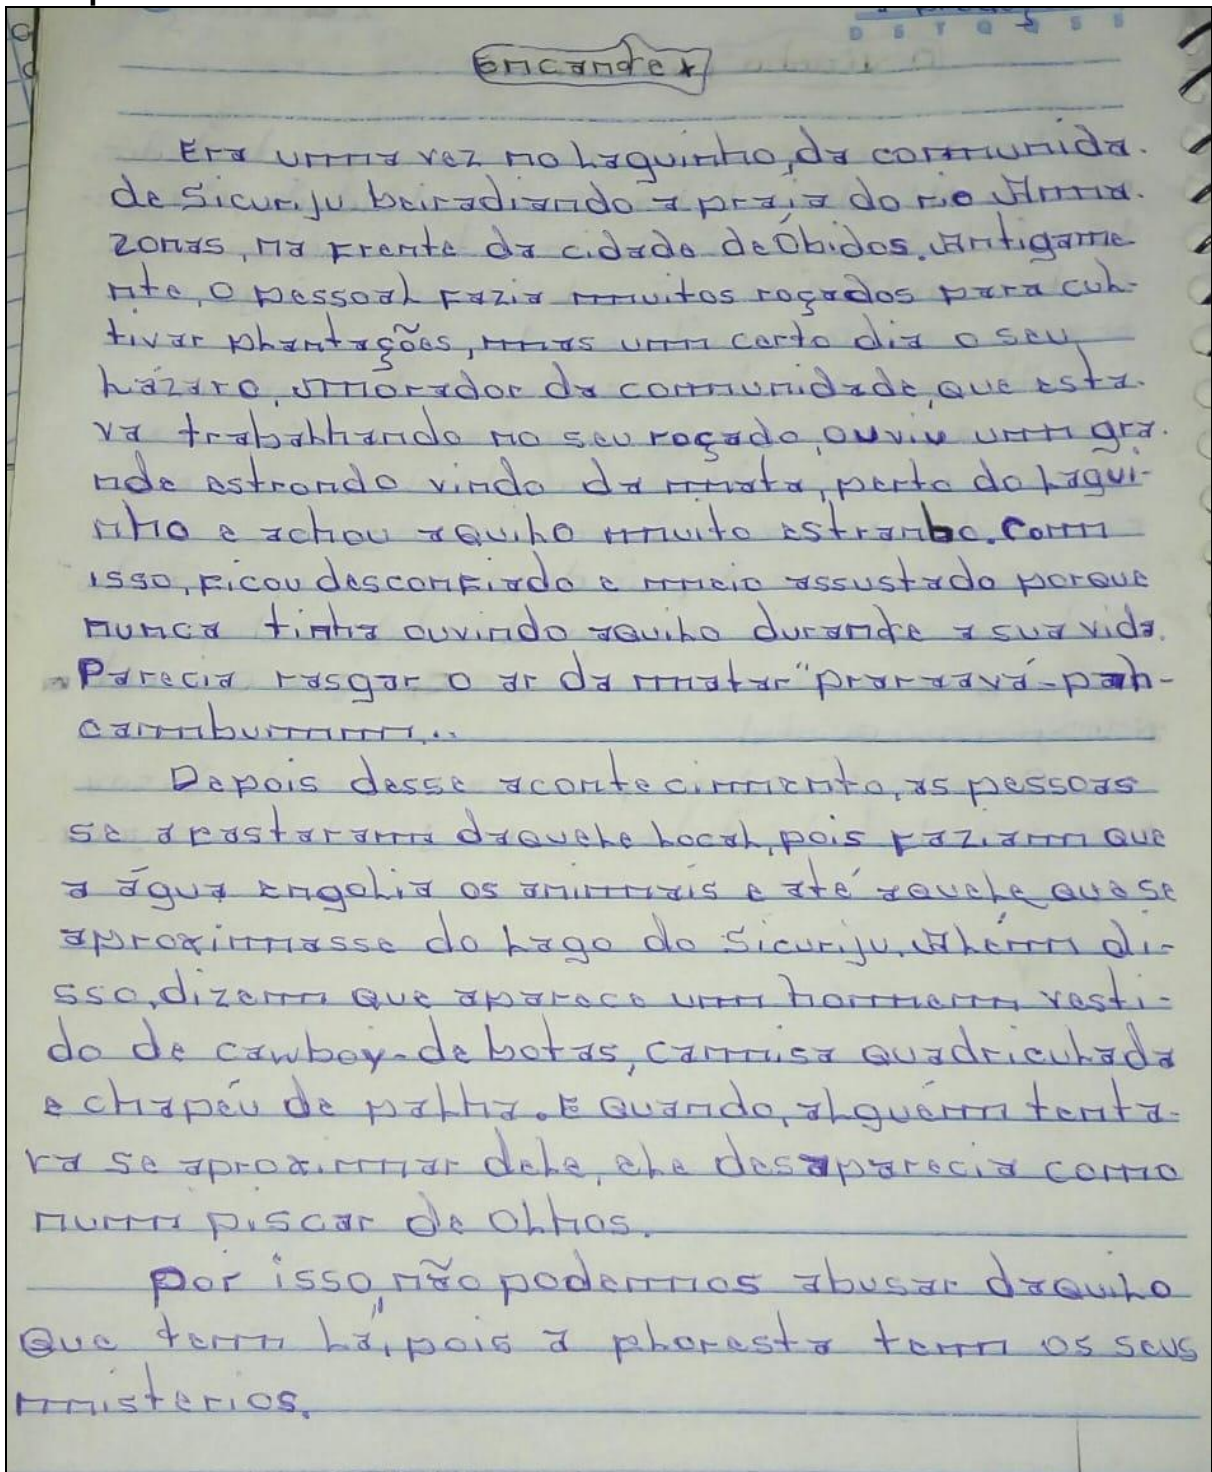 D S T Q Q S S
Encante
Era uma vez no Laguinho, da comunida-
de Sicuriju beiradiando a praia do rio Ama-
zonas, na frente da cidade de Óbidos. Antigame
nte, o pessoal fazia muitos roçados para cul-
tivar plantações, mas um certo dia o seu
Lázaro, morador da comunidade, que esta-
va trabalhando no seu roçado, ouviu um gra-
nde estrondo vindo da mata, perto do Lagui-
nho e achou aquilo muito estranho. Com
isso, ficou desconfiado e meio assustado porque
nunca tinha ouvindo aquilo durante a sua vida.
Parecia rasgar o ar da matar "praraavá-pah-
cambummm...
Depois desse acontecimento, as pessoas
se afastaram daquele local, pois faziam que
a água engolia os animais e até aquele que se
aproximasse do Lago do Sicuriju. Além di-
sso, dizem que aparece um homem vesti-
do de cawboy-de botas, camisa quadriculada
e chapéu de palha. E quando, alguém tenta-
va se aproximar dele, ele desaparecia como
num piscar de olhos.
Por isso, não podemos abusar daquilo
que tem lá, pois a floresta tem os seus
misterios.